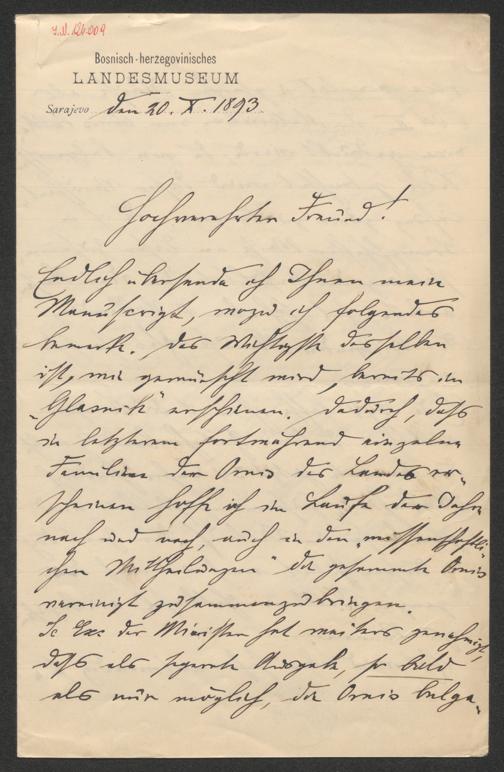 J.N. 126.009
Bosnisch-herzegovinisches
LANDESMUSEUM
Sarajevo den 20. X. 1893
Hochverehrter Freund!
Endlich übersende ich Ihnen mein
Manuscript, wozu ich folgendes
bemerke. Das Wichtigste desselben
ist, wie gewünscht wird, bereits im
„Glasnik“ erschienen. Dadurch, daß
in letzterem fortwährend einzelne
Familien der Ornis des Landes er-
scheinen hoffe ich im Laufe der Jahre
nach und nach, auch in den „wissenschaftli-
chen Mittheilungen“ die gesammte Ornis
vereinigt zusammenzubringen.
Se Exc der Minister hat weiters genehmigt,
daß als separate Ausgabe, so bald
als nur möglich, die Ornis balga-